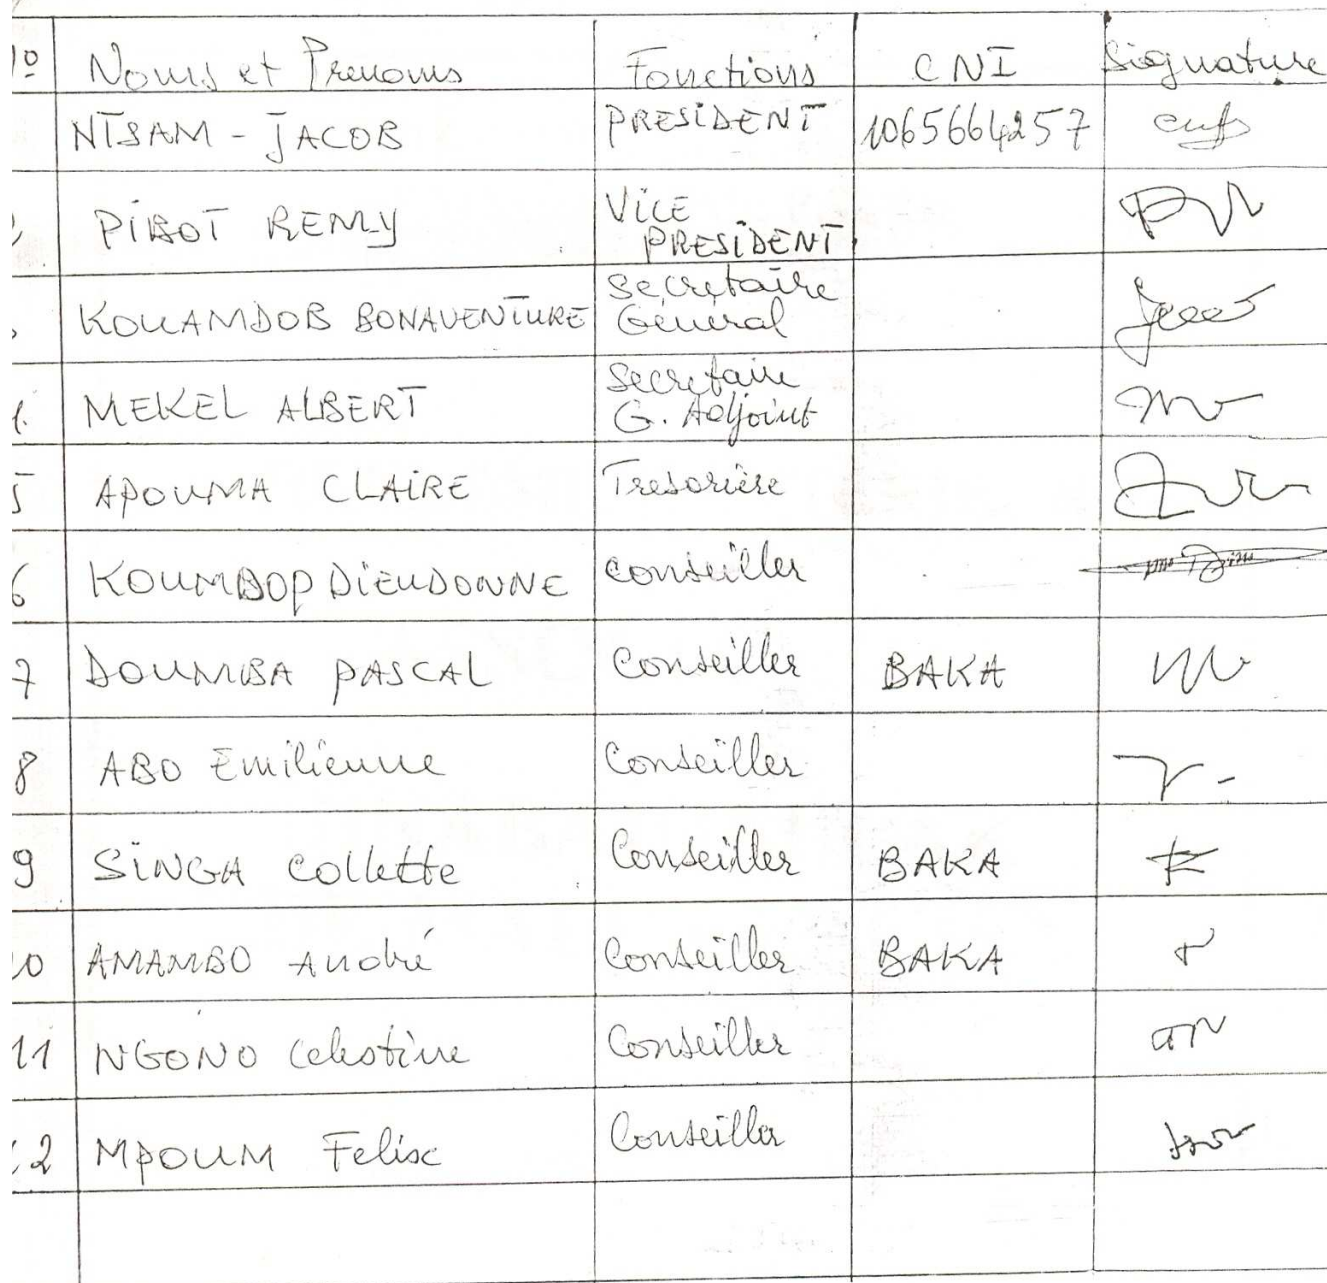 Nº Noms et Prenoms Fonctions CNI Signature
NTSAM - JACOB PRESIDENT 1065664257
2 PIBOT REMY VICE PRESIDENT
KOUAMDOB BONAVENTURE Secrétaire Général
4. MEKEL ALBERT Secretaire G. Adjoint
5 APOUMA CLAIRE Tresorière
6 KOUMBOP DIEUDONNE Conseiller
7 DOUMBA PASCAL Conseiller BAKA
8 ABO Emilienne Conseiller
9 SINGA Collette Conseiller BAKA
10 AMAMBO André Conseiller BAKA
11 NGONO Celestine Conseiller
12 MPOUM Felix Conseiller